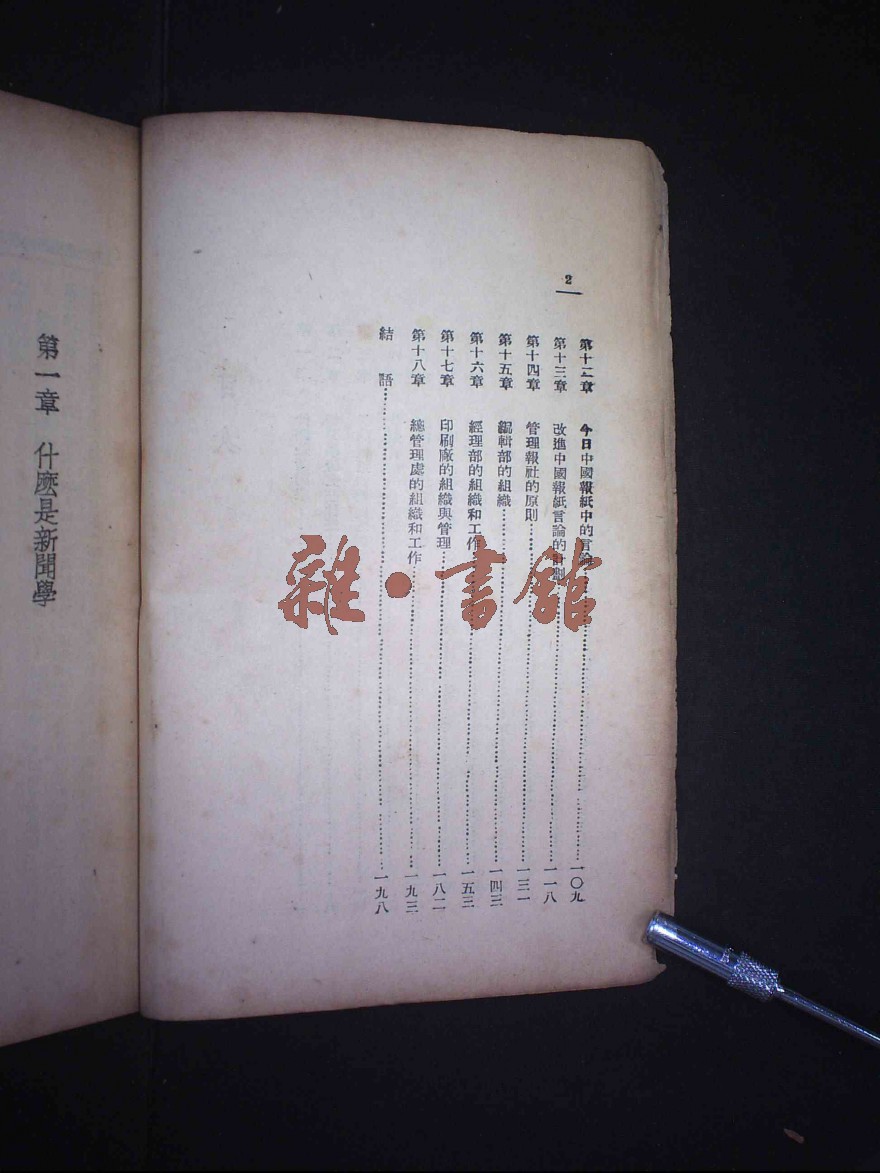 2
第十二章 今日中國報紙中的言論 一〇九
第十三章 改進中國報紙言論的計劃 一一八
第十四章 管理報社的原則 一三一
第十五章 編輯部的組織 一四三
第十六章 經理部的組織和工作 一五三
第十七章 印刷廠的組織與管理 一八二
第十八章 總管理處的組織和工作 一九三
結語 一九八
第一章 什麽是新聞學
雜·書館